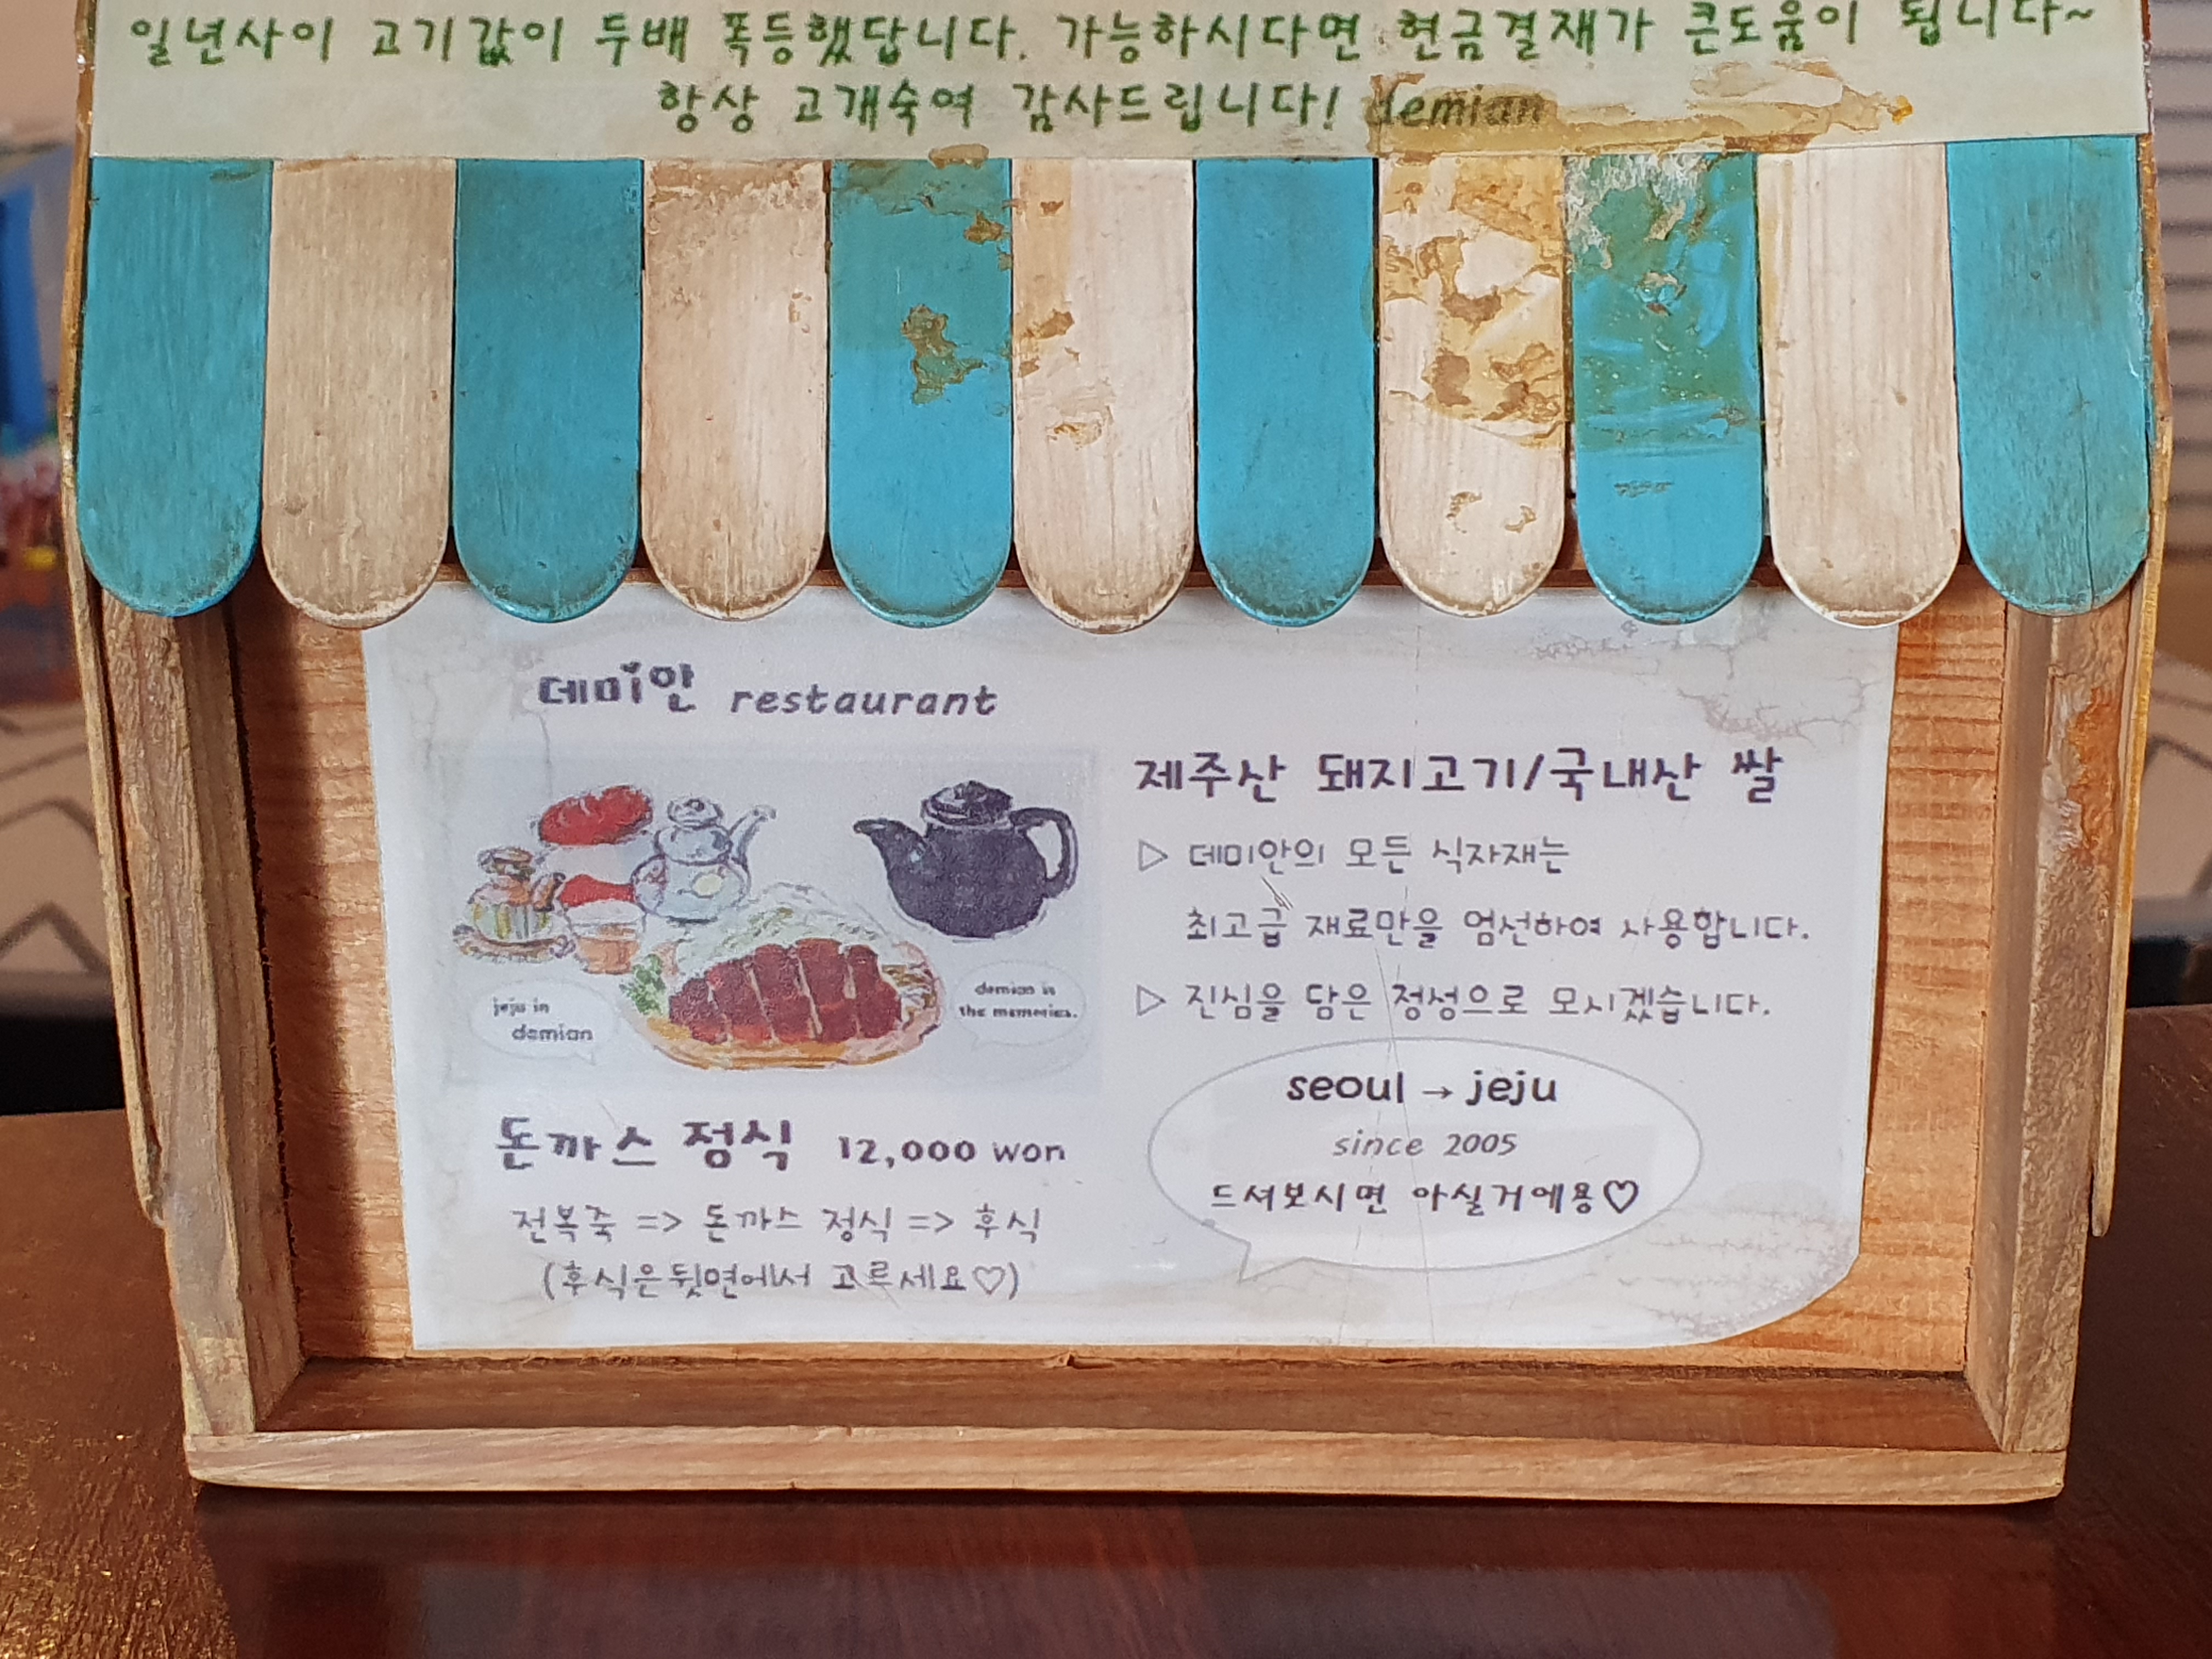 일년사이 고기값이 두배 폭등했답니다. 가능하시다면 현금결재가 큰도움이 됩니다~
항상 고개숙여 감사드립니다! demian
데미안 restaurant
jeju in
demian
demian is
the memories.
돈까스 정식 12,000 won
전복죽 => 돈까스 정식 => 후식
(후식은뒷면에서 고르세요♡)
제주산 돼지고기/국내산 쌀
▷ 데미안의 모든 식자재는
최고급 재료만을 엄선하여 사용합니다.
▷ 진심을 담은 정성으로 모시겠습니다.
seoul → jeju
since 2005
드셔보시면 아실거에용♡